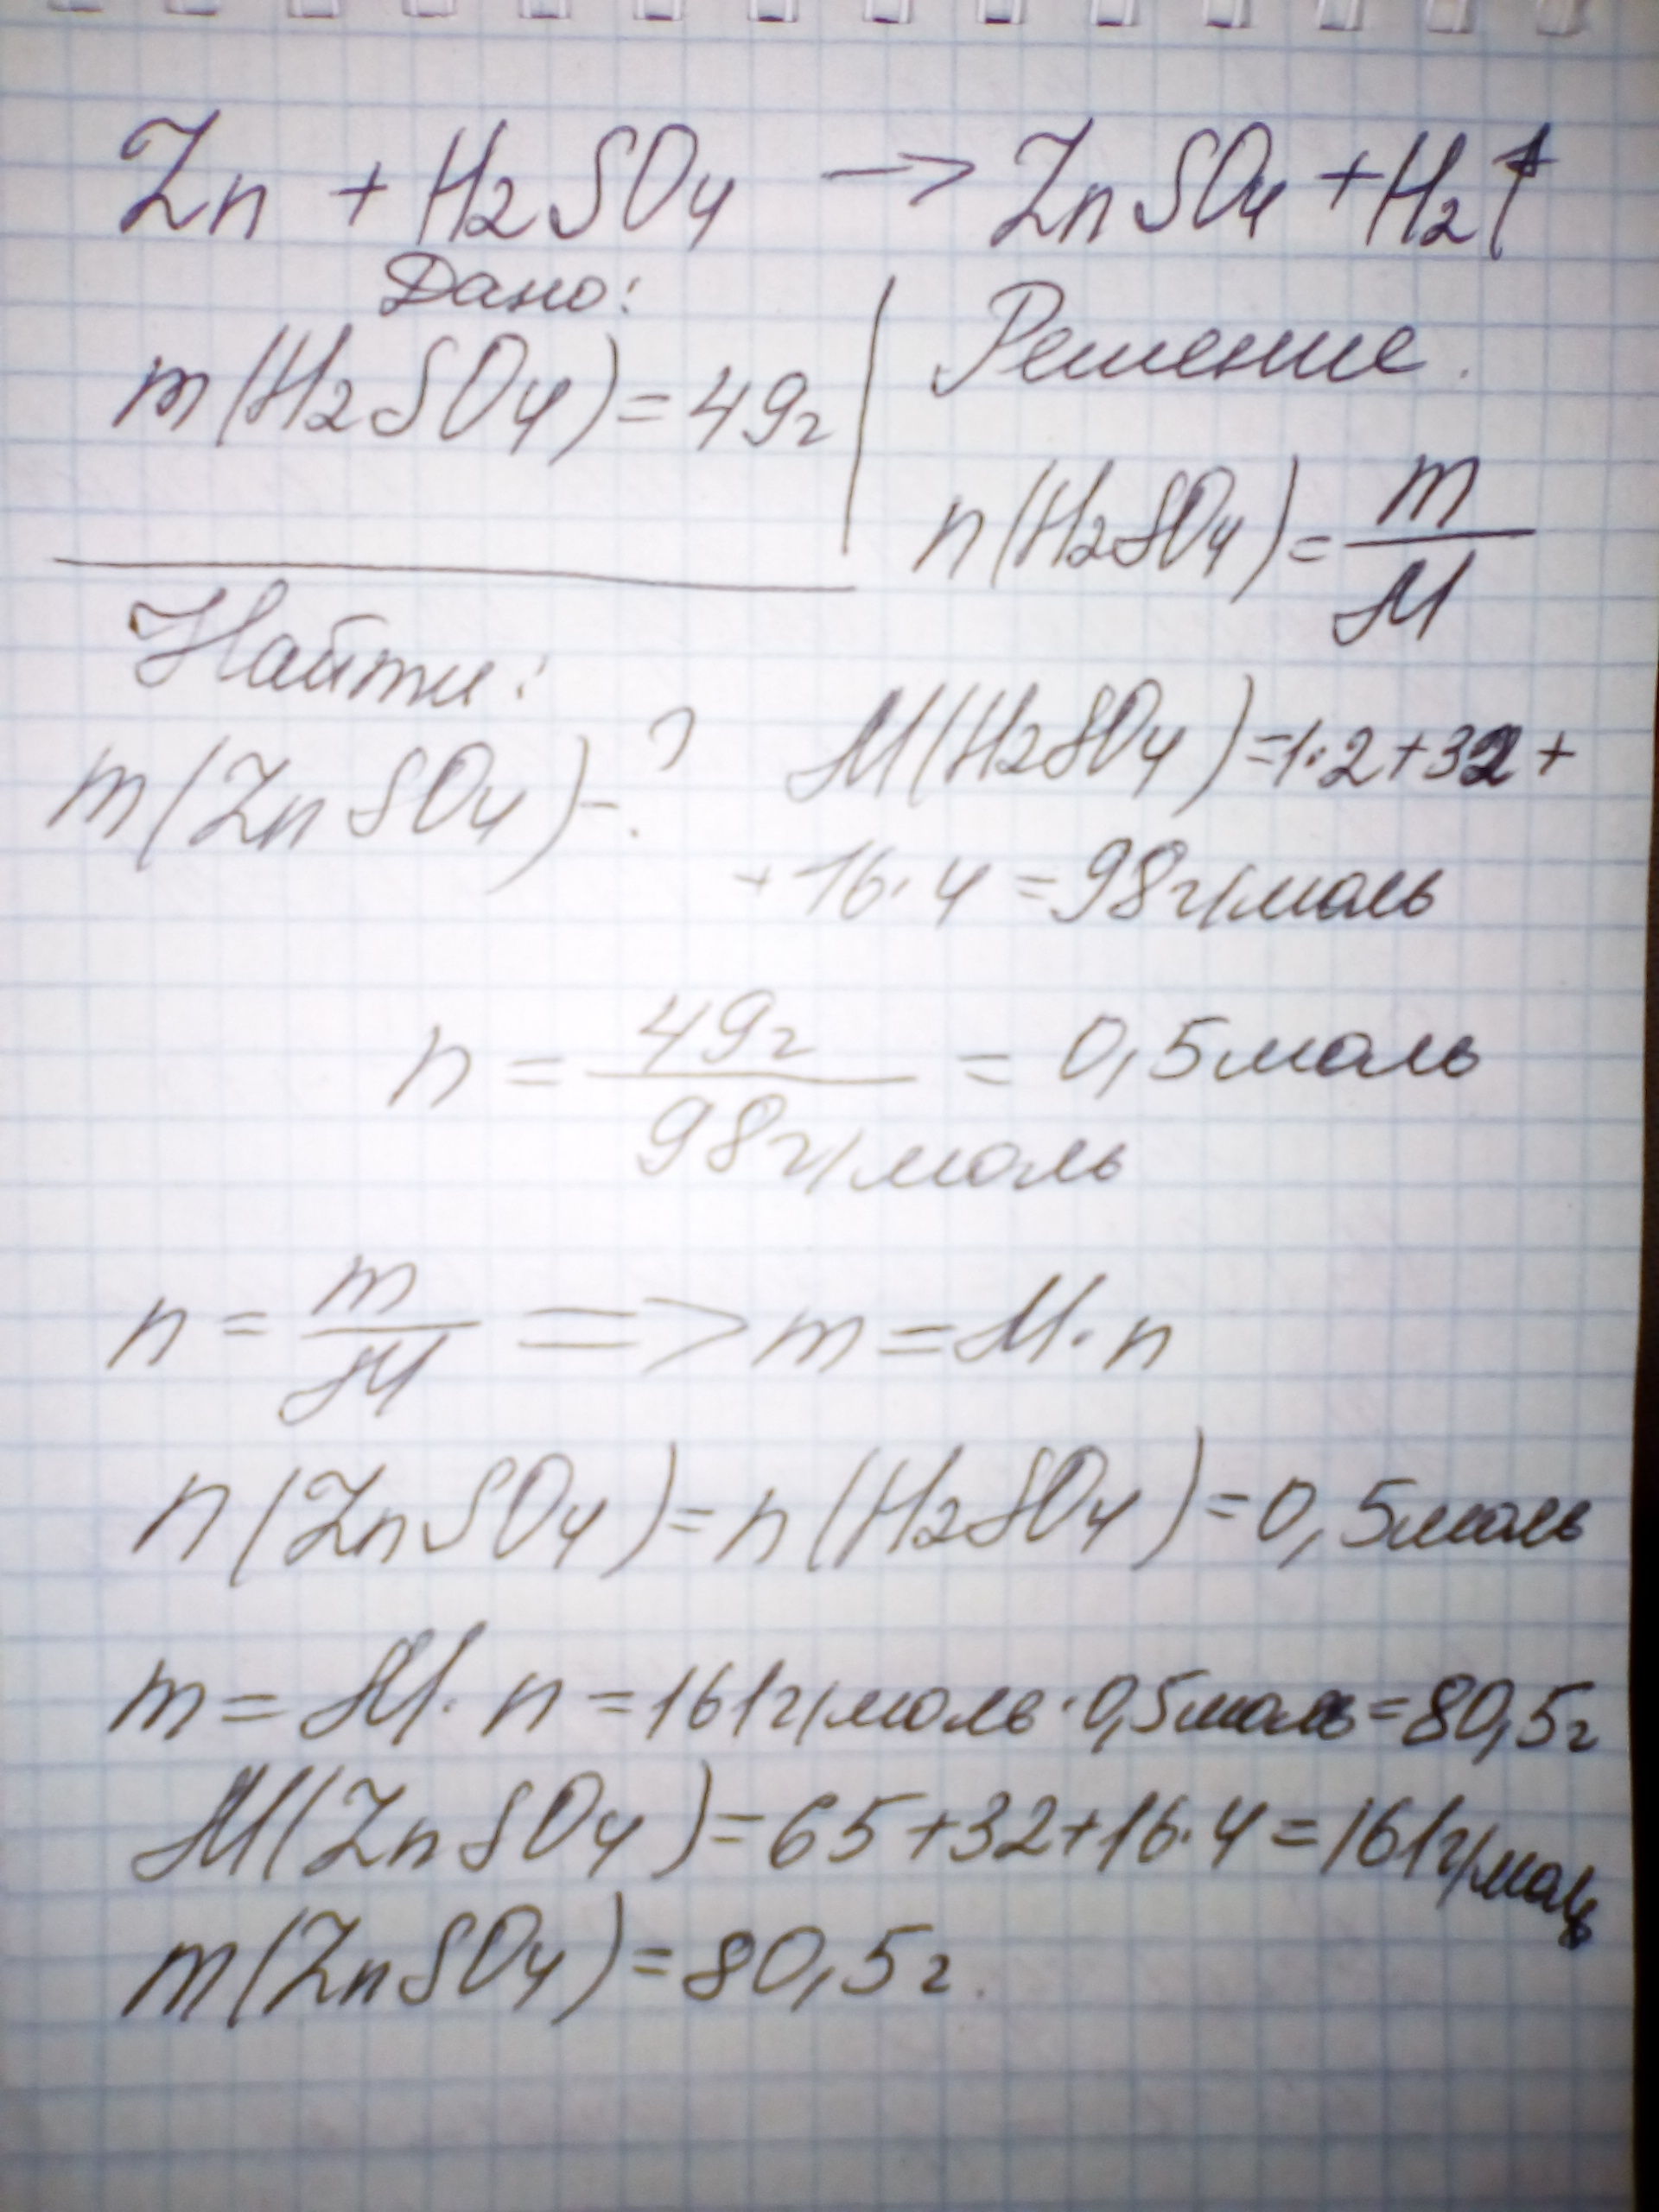 Zn + H2SO4 -> ZnSO4 + H2↑
Дано:
m(H2SO4) = 49г
Найти:
m(ZnSO4) - ?
Решение.
n(H2SO4) = m/M
M(H2SO4) = 1·2+32+
+16·4 = 98г/моль
n = 49г/98г/моль = 0,5моль
n = m/M => m = M·n
n(ZnSO4) = n(H2SO4) = 0,5моль
m = M·n = 161г/моль·0,5моль = 80,5г
M(ZnSO4) = 65+32+16·4 = 161г/моль
m(ZnSO4) = 80,5г.